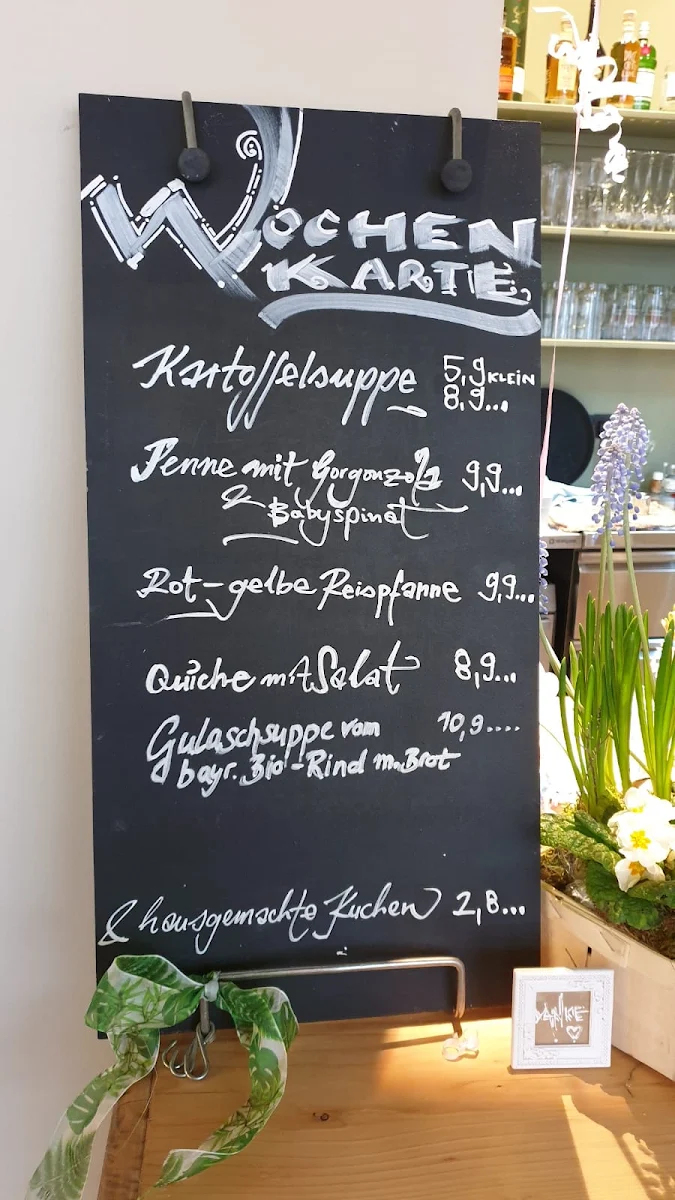 WOCHEN
KARTE
Kartoffelsuppe 5,9 KLEIN
8,9...
Penne mit Gorgonzola 9,9...
& Babyspinat
Rot-gelbe Reispfanne 9,9...
Quiche mit Salat 8,9...
Gulaschsuppe vom 10,9....
bayr. Bio-Rind m. Brot
& hausgemachte Kuchen 2,8...
DANKE